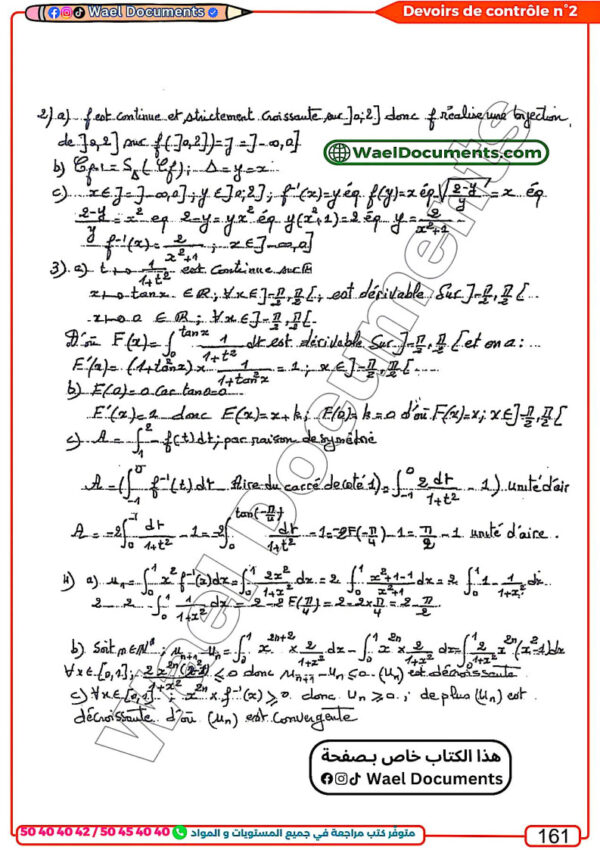 Wael Documents
Devoirs de contrôle n°2
2) a) f est continue et strictement croissante sur ]0;2] donc f réalise une bijection
de ]0,2] sur f(]0,2]) = J = ]-∞,0]
WaelDocuments.com
b) ζf⁻¹ = S_Δ(ζf); Δ = y = x
c) x∈J = ]-∞,0]; y∈]0;2]; f⁻¹(x)=y éq f(y)=x éq √((2-y)/y) = x éq
(2-y)/y = x² eq 2-y = yx² éq y(x²+1)=2 éq y = 2/(x²+1)
f⁻¹(x) = 2/(x²+1) ; x∈]-∞,0]
3) a) t ↦ 1/(1+t²) est continue sur ℝ
x ↦ tanx ∈ ℝ; ∀x∈]-π/2,π/2[; est dérivable sur ]-π/2,π/2[
x ↦ 0 ∈ ℝ; ∀x∈]-π/2,π/2[
D'où F(x) = ∫₀^tanx 1/(1+t²) dt est dérivable sur ]-π/2,π/2[ et on a :
F'(x) = (1+tan²x) × 1/(1+tan²x) = 1 ; x∈]-π/2,π/2[
b) F(0)=0 car tan0=0
F'(x)=1 donc F(x)=x+k; F(0)=k=0 d'où F(x)=x; x∈]-π/2,π/2[
c) A = ∫₁² -f(t)dt; par raison de symétrie
A = (∫₋₁⁰ f⁻¹(t)dt - Aire du carré de coté 1) = ∫₋₁⁰ 2dt/(1+t²) - 1) unité d'air
A = -2∫₀⁻¹ dt/(1+t²) - 1 = -2∫₀^tan(-π/4) dt/(1+t²) - 1 = -2F(-π/4) - 1 = π/2 - 1 unité d'aire.
4) a) u₁ = ∫₀¹ x² f⁻¹(x)dx = ∫₀¹ 2x²/(1+x²) dx = 2 ∫₀¹ (x²+1-1)/(1+x²) dx = 2 ∫₀¹ 1 - 1/(1+x²) dx
2 - 2 ∫₀¹ 1/(1+x²) dx = 2-2F(π/4) = 2-2×π/4 = 2-π/2
b) Soit n∈ℕ*; uₙ₊₁-uₙ = ∫₀¹ x²ⁿ⁺² × 2/(1+x²) dx - ∫₀¹ x²ⁿ × 2/(1+x²) dx = ∫₀¹ 2/(1+x²) x²ⁿ(x²-1)dx
∀x∈[0,1]; 2x²ⁿ(x²-1)/(1+x²) ≤ 0 donc uₙ₊₁-uₙ ≤ 0. (uₙ) est décroissante
c) ∀x∈[0,1]; x²ⁿ × f⁻¹(x) ≥ 0 donc uₙ ≥ 0; de plus (uₙ) est
décroissante d'où (uₙ) est convergente
Wael Documents
هذا الكتاب خاص بصفحة
Wael Documents
50 40 40 42 / 50 45 40 40 متوفر كتب مراجعة في جميع المستويات و المواد
161